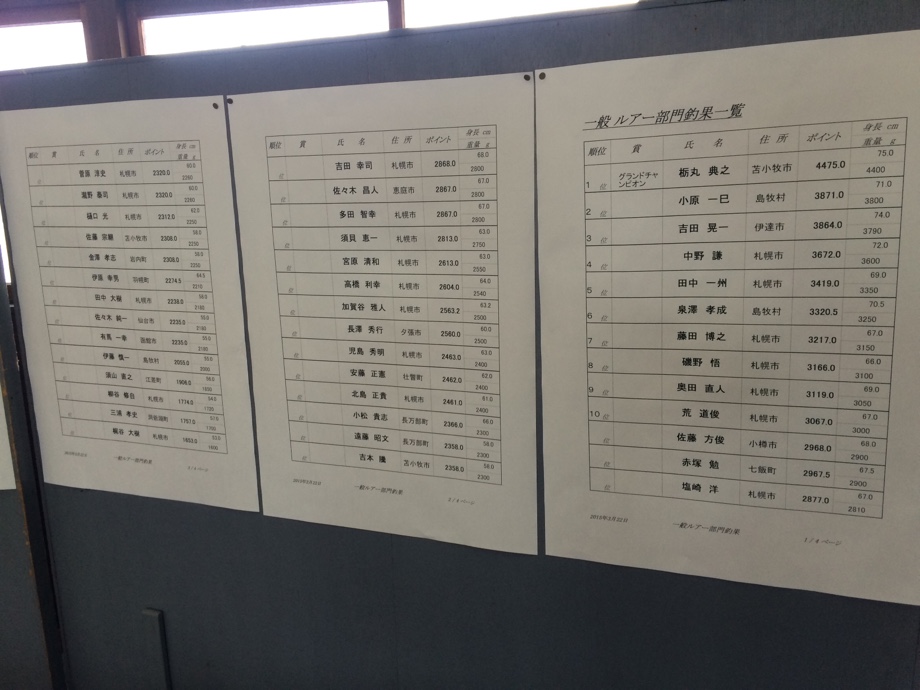 一般 ルアー部門釣果一覧
順位 賞 氏 名 住 所 ポイント 身長 cm 重量 g
1 位 グランドチャンピオン 栃丸 典之 苫小牧市 4475.0 75.0 4400
2 位 小原 一巳 島牧村 3871.0 71.0 3800
3 位 吉田 晃一 伊達市 3864.0 74.0 3790
4 位 中野 謙 札幌市 3672.0 72.0 3600
5 位 田中 一州 札幌市 3419.0 69.0 3350
6 位 泉澤 孝成 島牧村 3320.5 70.5 3250
7 位 藤田 博之 札幌市 3217.0 67.0 3150
8 位 磯野 悟 札幌市 3166.0 66.0 3100
9 位 奥田 直人 札幌市 3119.0 69.0 3050
10 位 荒 道俊 札幌市 3067.0 67.0 3000
位 佐藤 方俊 小樽市 2968.0 68.0 2900
位 赤塚 勉 七飯町 2967.5 67.5 2900
位 塩崎 洋 札幌市 2877.0 67.0 2810
一般ルアー部門釣果
1 / 4 ページ
順位 賞 氏 名 住 所 ポイント 身長 cm 重量 g
位 吉田 幸司 札幌市 2868.0 68.0 2800
位 佐々木 昌人 恵庭市 2867.0 67.0 2800
位 多田 智幸 札幌市 2867.0 67.0 2800
位 須貝 恵一 札幌市 2813.0 63.0 2750
位 宮原 清和 札幌市 2613.0 63.0 2550
位 高橋 利幸 札幌市 2604.0 64.0 2540
位 加賀谷 雅人 札幌市 2563.2 63.2 2500
位 長澤 秀行 夕張市 2560.0 60.0 2500
位 児島 秀明 札幌市 2463.0 63.0 2400
位 安藤 正憲 壮瞥町 2462.0 62.0 2400
位 北島 正貴 札幌市 2461.0 61.0 2400
位 小松 貴志 長万部町 2366.0 66.0 2300
位 遠藤 昭文 長万部町 2358.0 58.0 2300
位 吉本 苫小牧市 2358.0 58.0 2300
一般ルアー部門釣果
2 / 4 ページ
順位 賞 氏 名 住 所 ポイント 身長 cm 重量 g
位 淳史 札幌市 2320.0 60.0 2260
位 瀧野 泰司 札幌市 2320.0 60.0 2260
位 樋口 元 札幌市 2312.0 62.0 2250
位 佐藤 苫小牧市 2308.0 58.0 2250
位 金澤 孝志 岩内町 2308.0 58.0 2250
位 伊藤 幸男 羽幌町 2274.5 64.5 2210
位 田中 大樹 札幌市 2238.0 58.0 2180
位 佐々木 純一 仙台市 2235.0 55.0 2180
位 有馬 一幸 函館市 2235.0 55.0 2180
位 伊藤 慎一 島牧村 2055.0 55.0 2000
位 深山 江差町 1906.0 56.0 1850
位 柳谷 札幌市 1774.0 54.0 1720
位 三浦 孝史 1757.0 1700
位 大樹 札幌市 1653.0 53.0 1600
一般ルアー部門釣果
3 / 4 ページ